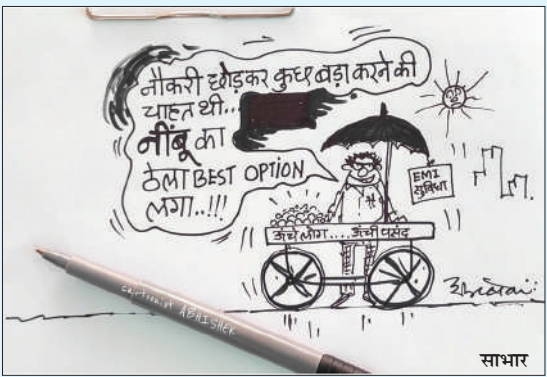 नौकरी छोड़कर कुछ बड़ा करने की
चाहत थी...
नींबू का
ठेला BEST OPTION
लगा..!!!
EMI
सुविधा
ऊंचे लोग....ऊंची पसंद
cartoonist ABHISHEK
साभार